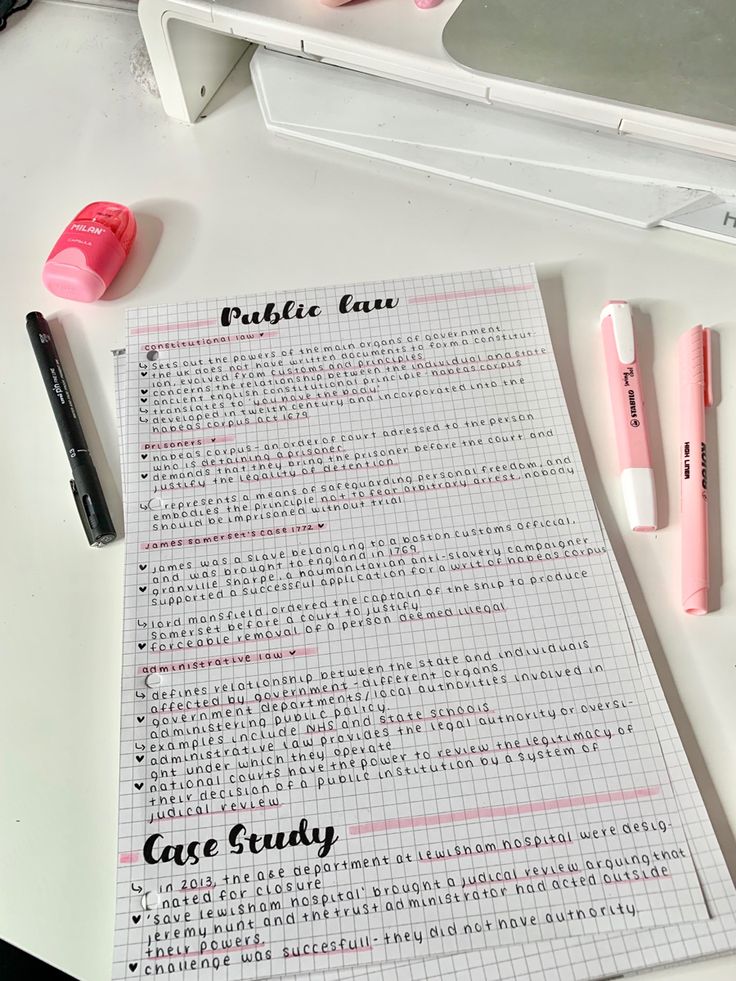 MILAN
CAPSULE
uni pin
0.3
STABILO
swing cool
HIGH LINER
Public law
constitutional law
sets out the powers of the main organs of government
the uk does not have written documents to form a constitut-
ion, evolved from customs and principles
concerns the relationship between the individual and state
ancient english constitutional principle - habeas corpus
translates to 'you have the body'
developed in twelth century and incorporated into the
habeas corpus act 1679
Prisoners
habeas corpus - an order of court adressed to the person
who is detaining a prisoner
demands that they bring the prisoner before the court and
justify the legality of detention
represents a means of safeguarding personal freedom, and
embodies the principle not to fear arbitrary arrest, nobody
should be imprisoned without trial
James Somerset's case 1772
james was a slave belonging to a boston customs official,
and was brought to england in 1769
granville sharpe, a haumanitarian anti-slavery campaigner
supported a successful application for a writ of habeas corpus
lord mansfield, ordered the captain of the ship to produce
somerset before a court to justify
forceable removal of a person deemed illegal
administrative law
defines relationship between the state and individuals
affected by government - different organs
government departments/local authorities involved in
administering public policy.
examples include NHS and state schools
administrative law provides the legal authority or oversi-
ght under which they operate
national courts have the power to review the legitimacy of
their decision of a public institution by a system of
judical review
Case Study
in 2013, the a&e department at lewisham hospital were desig-
nated for closure
'save lewisham hospital' brought a judical review arguing that
jeremy hunt and the trust administrator had acted outside
their powers.
challenge was succesfull - they did not have authority.